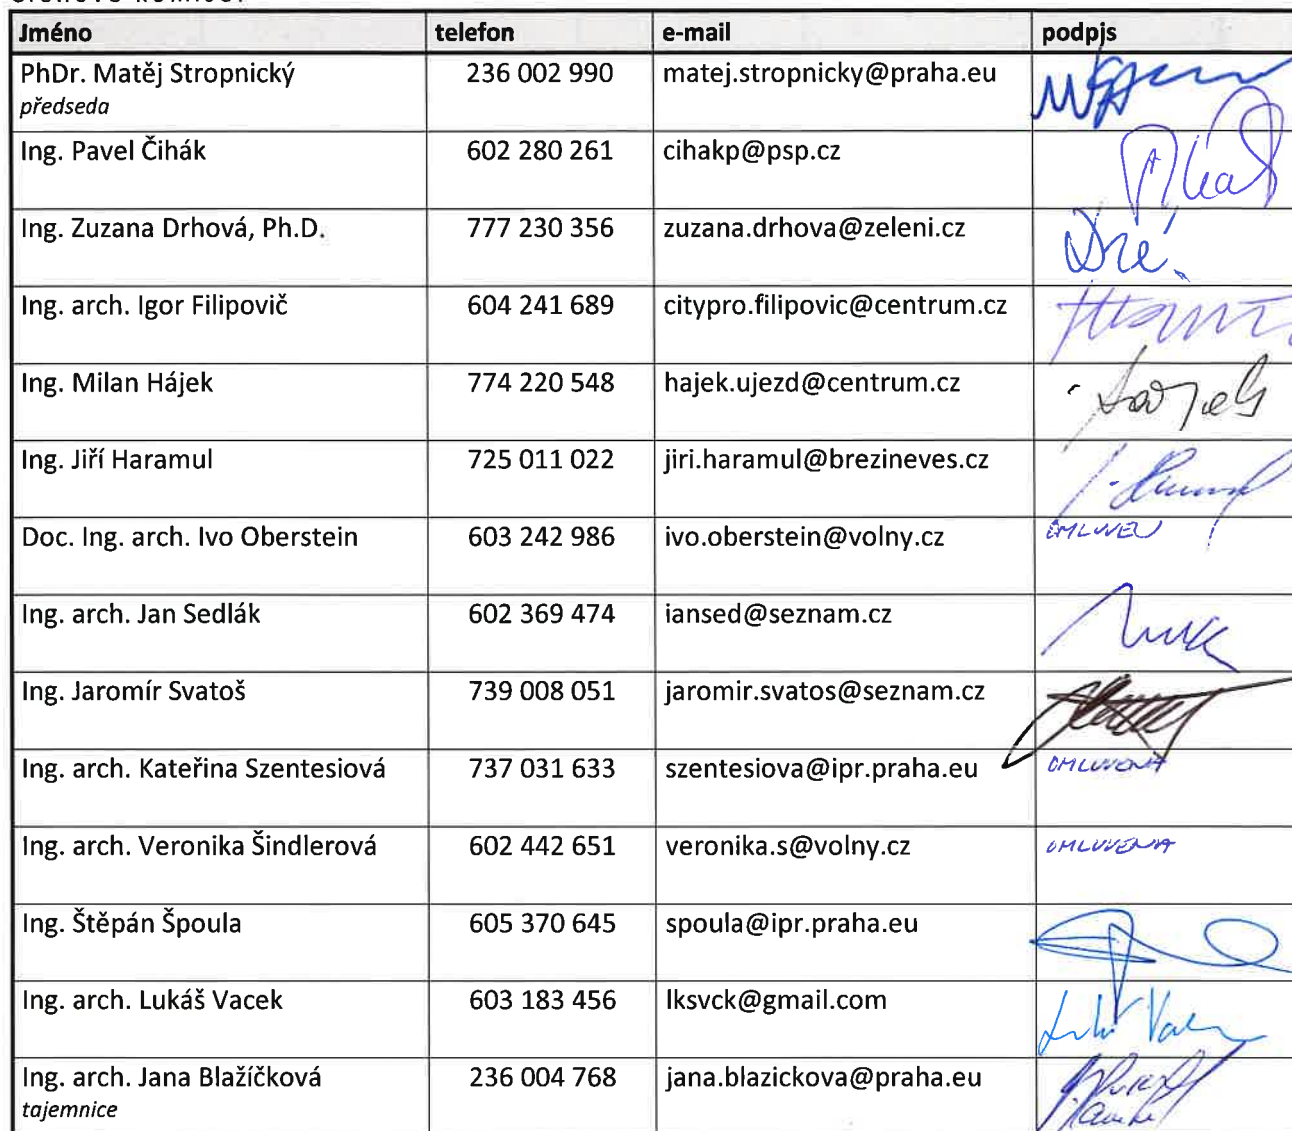 Jméno telefon e-mail podpis
PhDr. Matěj Stropnický 236 002 990 matej.stropnicky@praha.eu
předseda
Ing. Pavel Čihák 602 280 261 cihakp@psp.cz
Ing. Zuzana Drhová, Ph.D. 777 230 356 zuzana.drhova@zeleni.cz
Ing. arch. Igor Filipovič 604 241 689 citypro.filipovic@centrum.cz
Ing. Milan Hájek 774 220 548 hajek.ujezd@centrum.cz
Ing. Jiří Haramul 725 011 022 jiri.haramul@brezineves.cz
Doc. Ing. arch. Ivo Oberstein 603 242 986 ivo.oberstein@volny.cz OMLUVEN
Ing. arch. Jan Sedlák 602 369 474 iansed@seznam.cz
Ing. Jaromír Svatoš 739 008 051 jaromir.svatos@seznam.cz
Ing. arch. Kateřina Szentesiová 737 031 633 szentesiova@ipr.praha.eu OMLUVENA
Ing. arch. Veronika Šindlerová 602 442 651 veronika.s@volny.cz OMLUVENA
Ing. Štěpán Špoula 605 370 645 spoula@ipr.praha.eu
Ing. arch. Lukáš Vacek 603 183 456 lksvck@gmail.com
Ing. arch. Jana Blažíčková 236 004 768 jana.blazickova@praha.eu
tajemnice